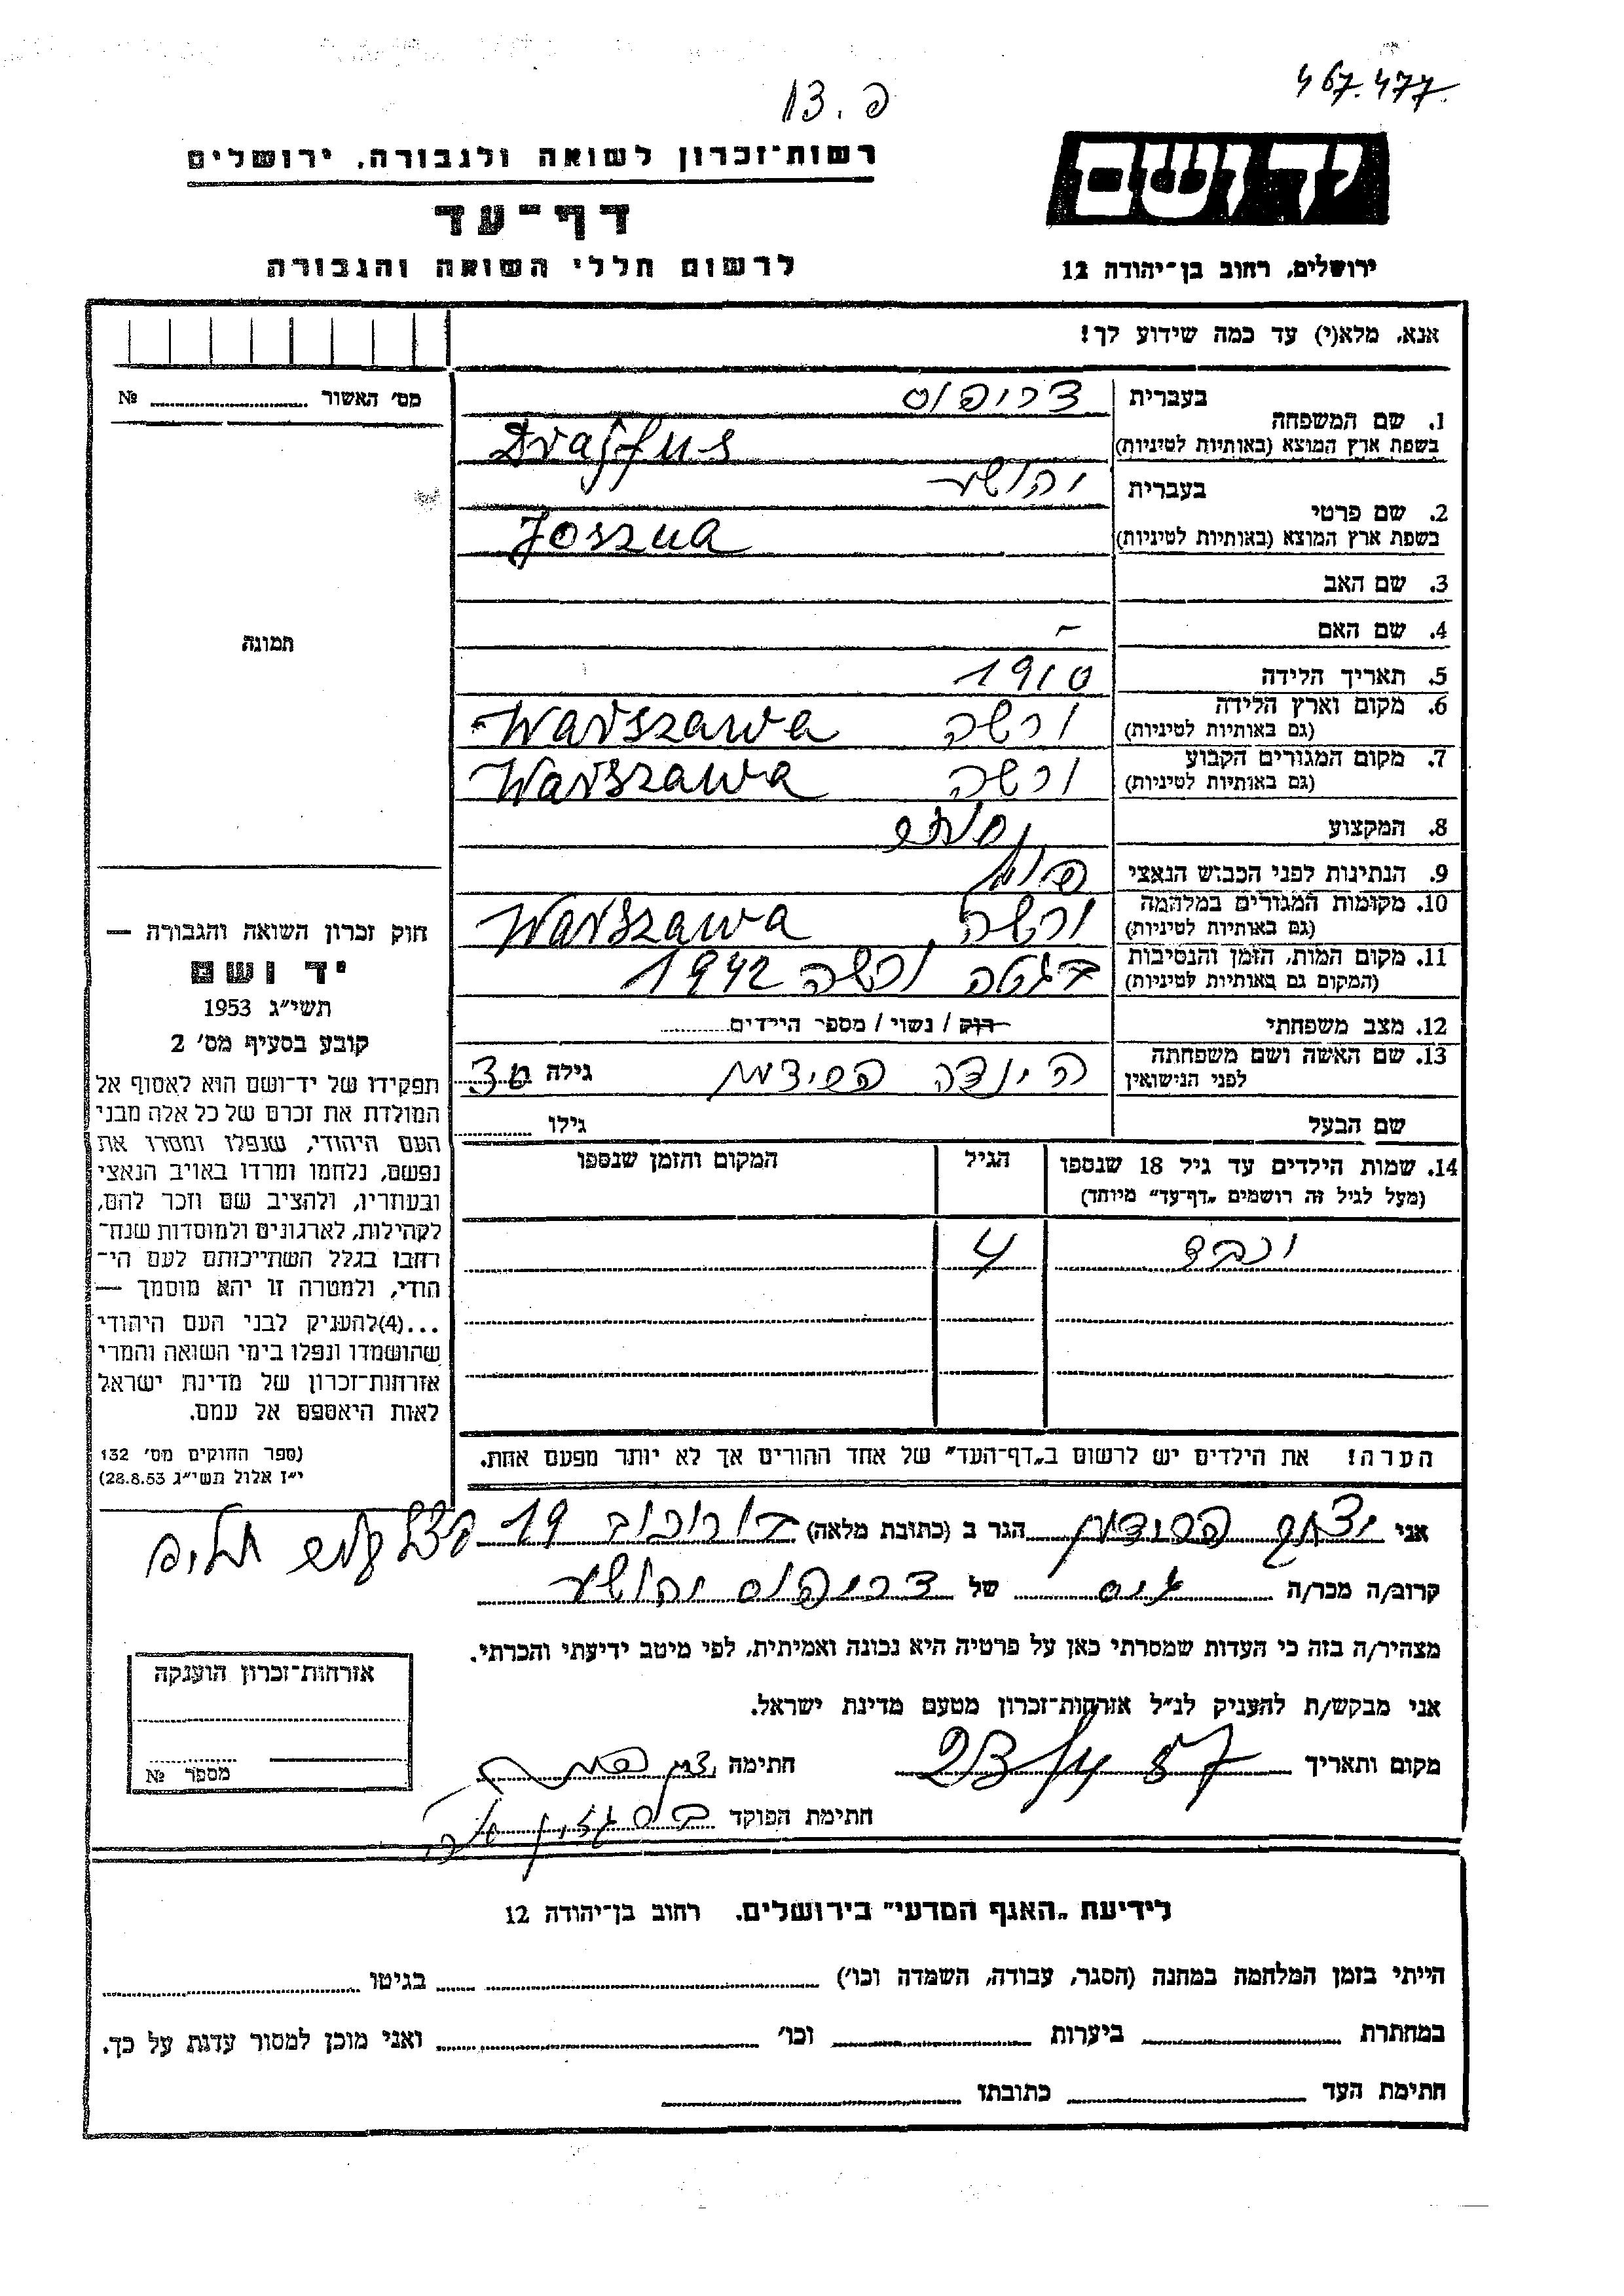 467.477
פ. 13
יד ושם
רשות־זכרון לשואה ולגבורה. ירושלים
דף־עד
לרשום חללי השואה והגבורה
ירושלים, רחוב בן־יהודה 12
אנא, מלא(י) עד כמה שידוע לך!
מס׳ האשור № 
1. שם המשפחה
בעברית
דריפוס
בשפת ארץ המוצא (באותיות לטיניות)
Drajfus
2. שם פרטי
בעברית
יהושע
בשפת ארץ המוצא (באותיות לטיניות)
Joszua
3. שם האב
4. שם האם -
5. תאריך הלידה 1910
6. מקום וארץ הלידה
(גם באותיות לטיניות)
ורשה Warszawa
7. מקום המגורים הקבוע
(גם באותיות לטיניות)
ורשה Warszawa
8. המקצוע
9. הנתינות לפני הכבוש הנאצי
10. מקומות המגורים במלחמה
(גם באותיות לטיניות)
ורשה Warszawa
11. מקום המות, הזמן והנסיבות
(המקום גם באותיות לטיניות)
בגטה ורשה 1942
12. מצב משפחתי רוק / נשוי / מספר הילדים
13. שם האשה ושם משפחתה
לפני הנישואין
גילה
שם הבעל גילו
14. שמות הילדים עד גיל 18 שנספו
(מעל לגיל זה רושמים „דף־עד״ מיוחד)
הגיל
המקום והזמן שנספו
4
הערה! את הילדים יש לרשום ב„דף־העד״ של אחד ההורים אך לא יותר מפעם אחת.
תמונה
חוק זכרון השואה והגבורה —
יד ושם
תשי״ג 1953
קובע בסעיף מס׳ 2
תפקידו של יד־ושם הוא לאסוף אל
המולדת את זכרם של כל אלה מבני
העם היהודי, שנפלו ומסרו את
נפשם, נלחמו ומרדו באויב הנאצי
ובעוזריו, ולהציב שם וזכר להם,
לקהילות, לארגונים ולמוסדות שנח־
רחבו בגלל השתייכותם לעם הי־
הודי, ולמטרה זו יהא מוסמך —
...(4)להעניק לבני העם היהודי
שהושמדו ונפלו בימי השואה והמרי
אזרחות־זכרון של מדינת ישראל
לאות היאספם אל עמם.
(ספר החוקים מס׳ 132
י״ז אלול תשי״ג 28.8.53)
אני יצחק הגר ב (כתובת מלאה) בורוכוב 19
קרוב/ה מכר/ה גיס של דריפוס יהושע
מצהיר/ה בזה כי העדות שמסרתי כאן על פרטיה היא נכונה ואמיתית, לפי מיטב ידיעתי והכרתי.
אני מבקש/ת להעניק לנ״ל אזרחות־זכרון מטעם מדינת ישראל.
מקום ותאריך חתימה
חתימת הפוקד
אזרחות־זכרון הוענקה
מספר №
לידיעת „האגף המדעי״ בירושלים. רחוב בן־יהודה 12
הייתי בזמן המלחמה במחנה (הסגר, עבודה, השמדה וכו׳) בגיטו
במחתרת ביערות וכו׳ ואני מוכן למסור עדות על כך.
חתימת העד כתובתו